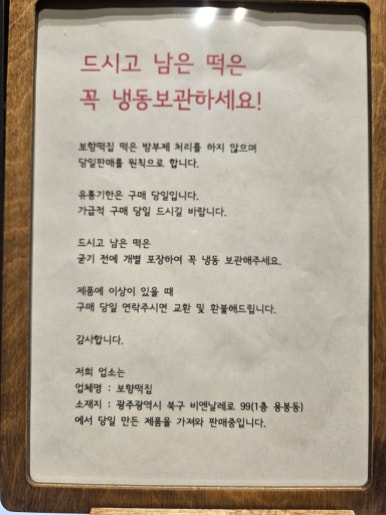 드시고 남은 떡은
꼭 냉동보관하세요!
보향떡집 떡은 방부제 처리를 하지 않으며
당일판매를 원칙으로 합니다.
유통기한은 구매 당일입니다.
가급적 구매 당일 드시길 바랍니다.
드시고 남은 떡은
굳기 전에 개별 포장하여 꼭 냉동 보관해주세요.
제품에 이상이 있을 때
구매 당일 연락주시면 교환 및 환불해드립니다.
감사합니다.
저희 업소는
업체명 : 보향떡집
소재지 : 광주광역시 북구 비엔날레로 99(1층 용봉동)
에서 당일 만든 제품을 가져와 판매중입니다.